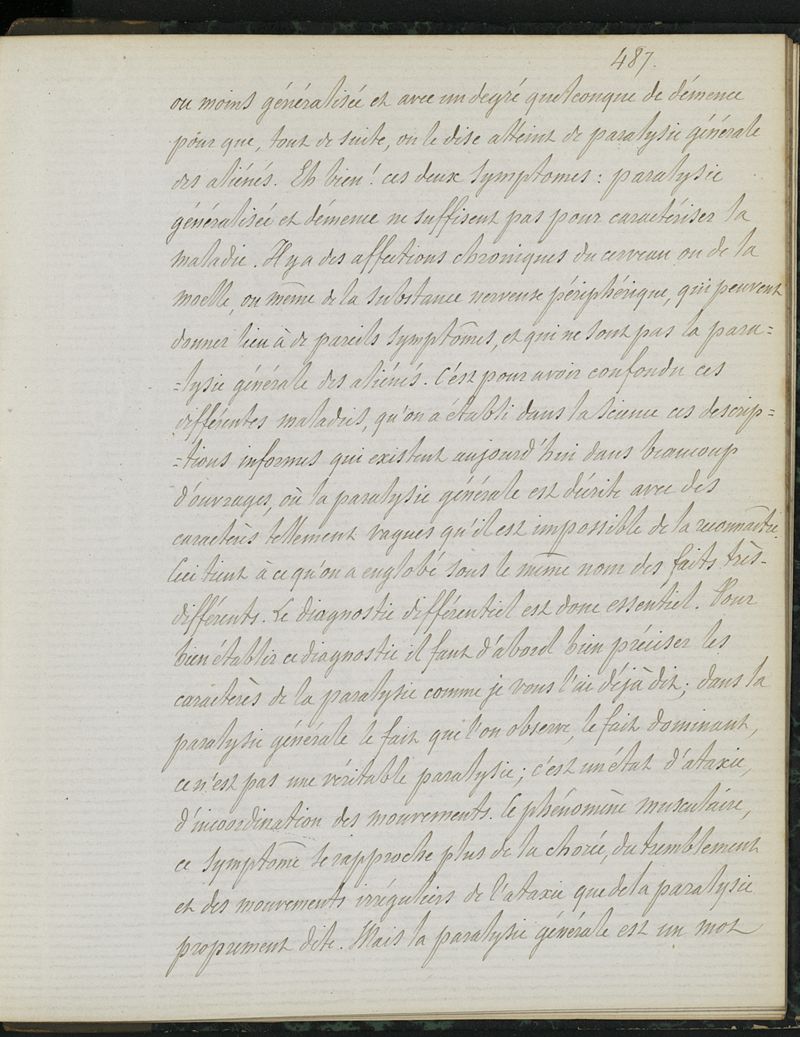 487.
ou moins généralisée et avec un degré quelconque de démence
pour que, tout de suite, on le dise atteint de paralysie générale
des aliénés. Eh bien ! ces deux symptomes : paralysie
généralisée et démence ne suffisent pas pour caractériser la
maladie. Il y a des affections chroniques du cerveau ou de la
moelle, ou même de la substance nerveuse périphérique, qui peuvent
donner lieu à de pareils symptômes, et qui ne sont pas la para=
=lysie générale des aliénés. C'est pour avoir confondu ces
différentes maladies, qu'on a établi dans la science ces descrip=
=tions informes qui existent aujourd'hui dans beaucoup
d'ouvrages, où la paralysie générale est décrite avec des
caractères tellement vagues qu'il est impossible de la reconnaître.
Ceci tient à ce qu'on a englobé sous le même nom des faits très-
différents. Le diagnostic différentiel est donc essentiel. Pour
bien établir ce diagnostic il faut d'abord bien préciser les
caractères de la paralysie comme je vous l'ai déjà dit ; dans la
paralysie générale le fait que l'on observe, le fait dominant,
ce n'est pas une véritable paralysie ; c'est un état d'ataxie,
d'incoordination des mouvements. Ce phénomène musculaire,
ce symptôme se rapproche plus de la chorée, du tremblement
et des mouvements irréguliers de l'ataxie que de la paralysie
proprement dite. Mais la paralysie générale est un mot